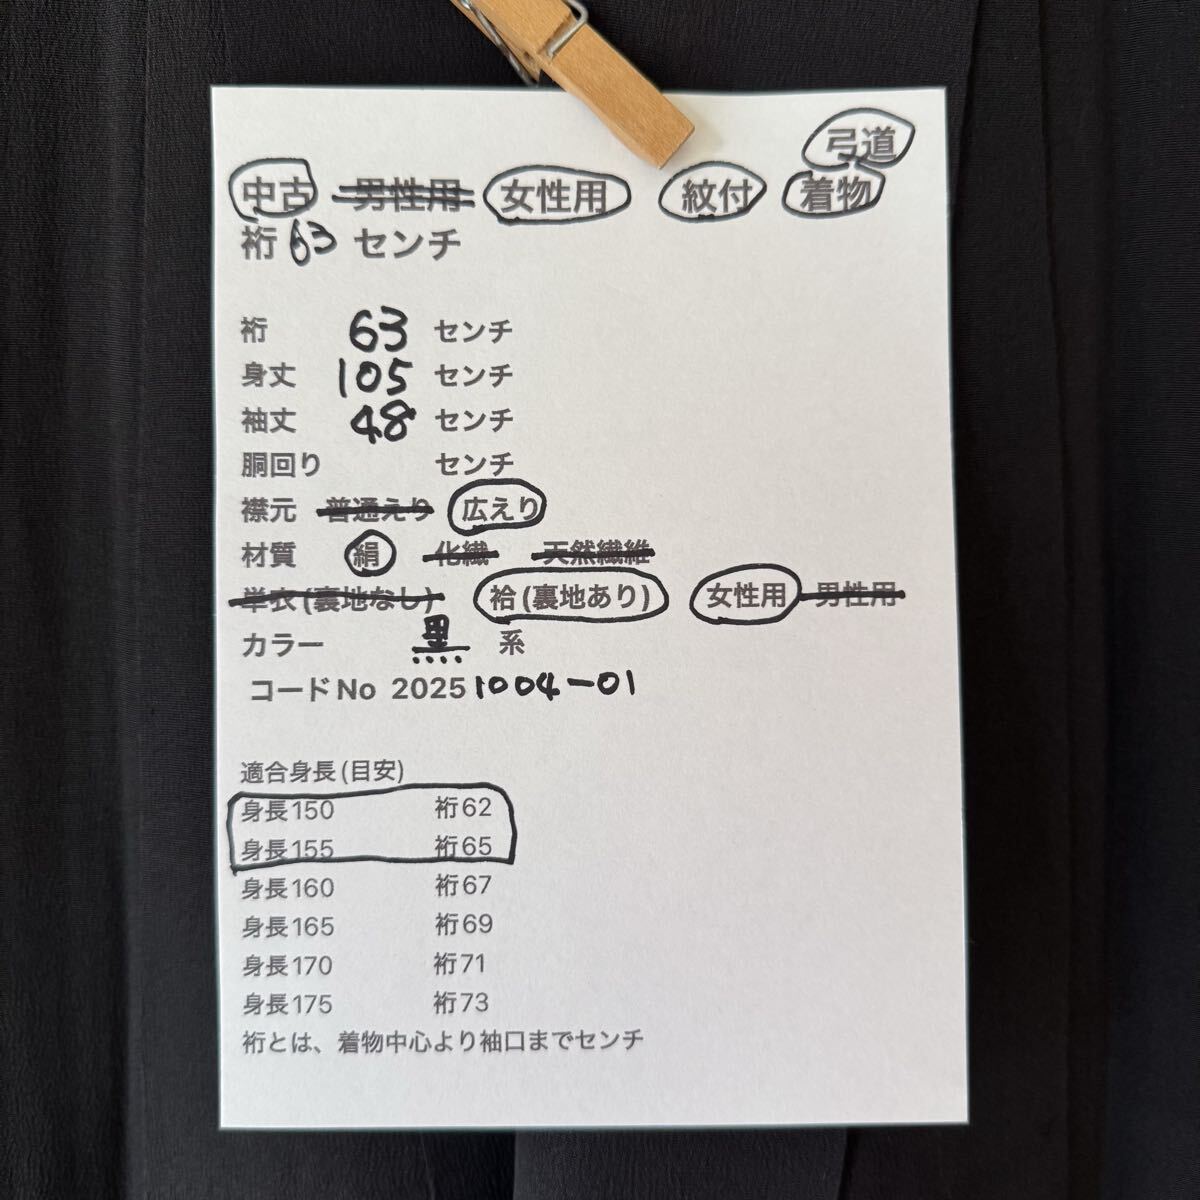 弓道
中古 男性用 女性用 紋付 着物
裄 63 センチ
裄 63 センチ
身丈 105 センチ
袖丈 48 センチ
胴回り センチ
襟元 普通えり 広えり
材質 絹 化繊 天然繊維
単衣(裏地なし) 袷(裏地あり) 女性用 男性用
カラー 黒 系
コードNo 2025 1004-01
適合身長(目安)
身長150 裄62
身長155 裄65
身長160 裄67
身長165 裄69
身長170 裄71
身長175 裄73
裄とは、着物中心より袖口までセンチ